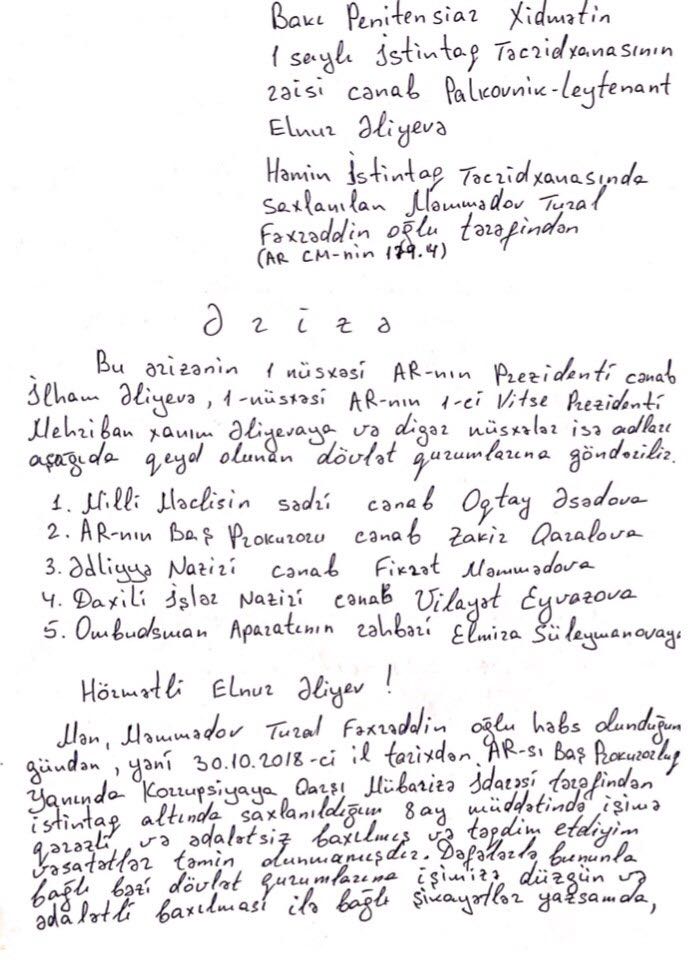 Bakı Penitensiar Xidmətin
1 saylı İstintaq Təcridxanasının
rəisi cənab Palkovnik-leytenant
Elnur Əliyevə
Həmin İstintaq Təcridxanasında
saxlanılan Məmmədov Tural
Fəxrəddin oğlu tərəfindən
(AR CM-nin 179.4)
Ə r i z ə
Bu ərizənin 1 nüsxəsi AR-nın Prezidenti cənab
İlham Əliyevə, 1-nüsxəsi AR-nın 1-ci Vitse Prezidenti
Mehriban xanım Əliyevaya və digər nüsxələr isə adları
aşağıda qeyd olunan dövlət qurumlarına göndərilir.
1. Milli Məclisin sədri cənab Oqtay Əsədova
2. AR-nın Baş Prokuroru cənab Zakir Qaralova
3. Ədliyyə Naziri cənab Fikrət Məmmədova
4. Daxili İşlər Naziri cənab Vilayət Eyvazova
5. Ombudsman Aparatının rəhbəri Elmira Süleymanovaya
Hörmətli Elnur Əliyev!
Mən, Məmmədov Tural Fəxrəddin oğlu həbs olunduğun
gündən, yəni 30.10.2018-ci il tarixdən AR-sı Baş Prokurorluq
Yanında Korrupsiyaya Qarşı Mübarizə İdarəsi tərəfindən
istintaq altında saxlanıldığım 8 ay müddətində işimə
qərəzli və ədalətsiz baxılmış və təqdim etdiyim
vəsatətlər təmin olunmamışdır. Dəfələrlə bununla
bağlı bəzi dövlət qurumlarına işimizə düzgün və
ədalətli baxılması ilə bağlı şikayətlər yazsamda,